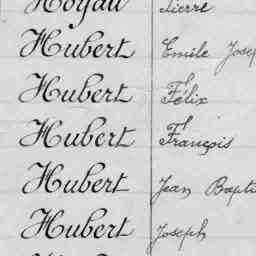 Hoyau Pierre
Hubert Emile Josep
Hubert Félix
Hubert François
Hubert Jean Bapti
Hubert Joseph